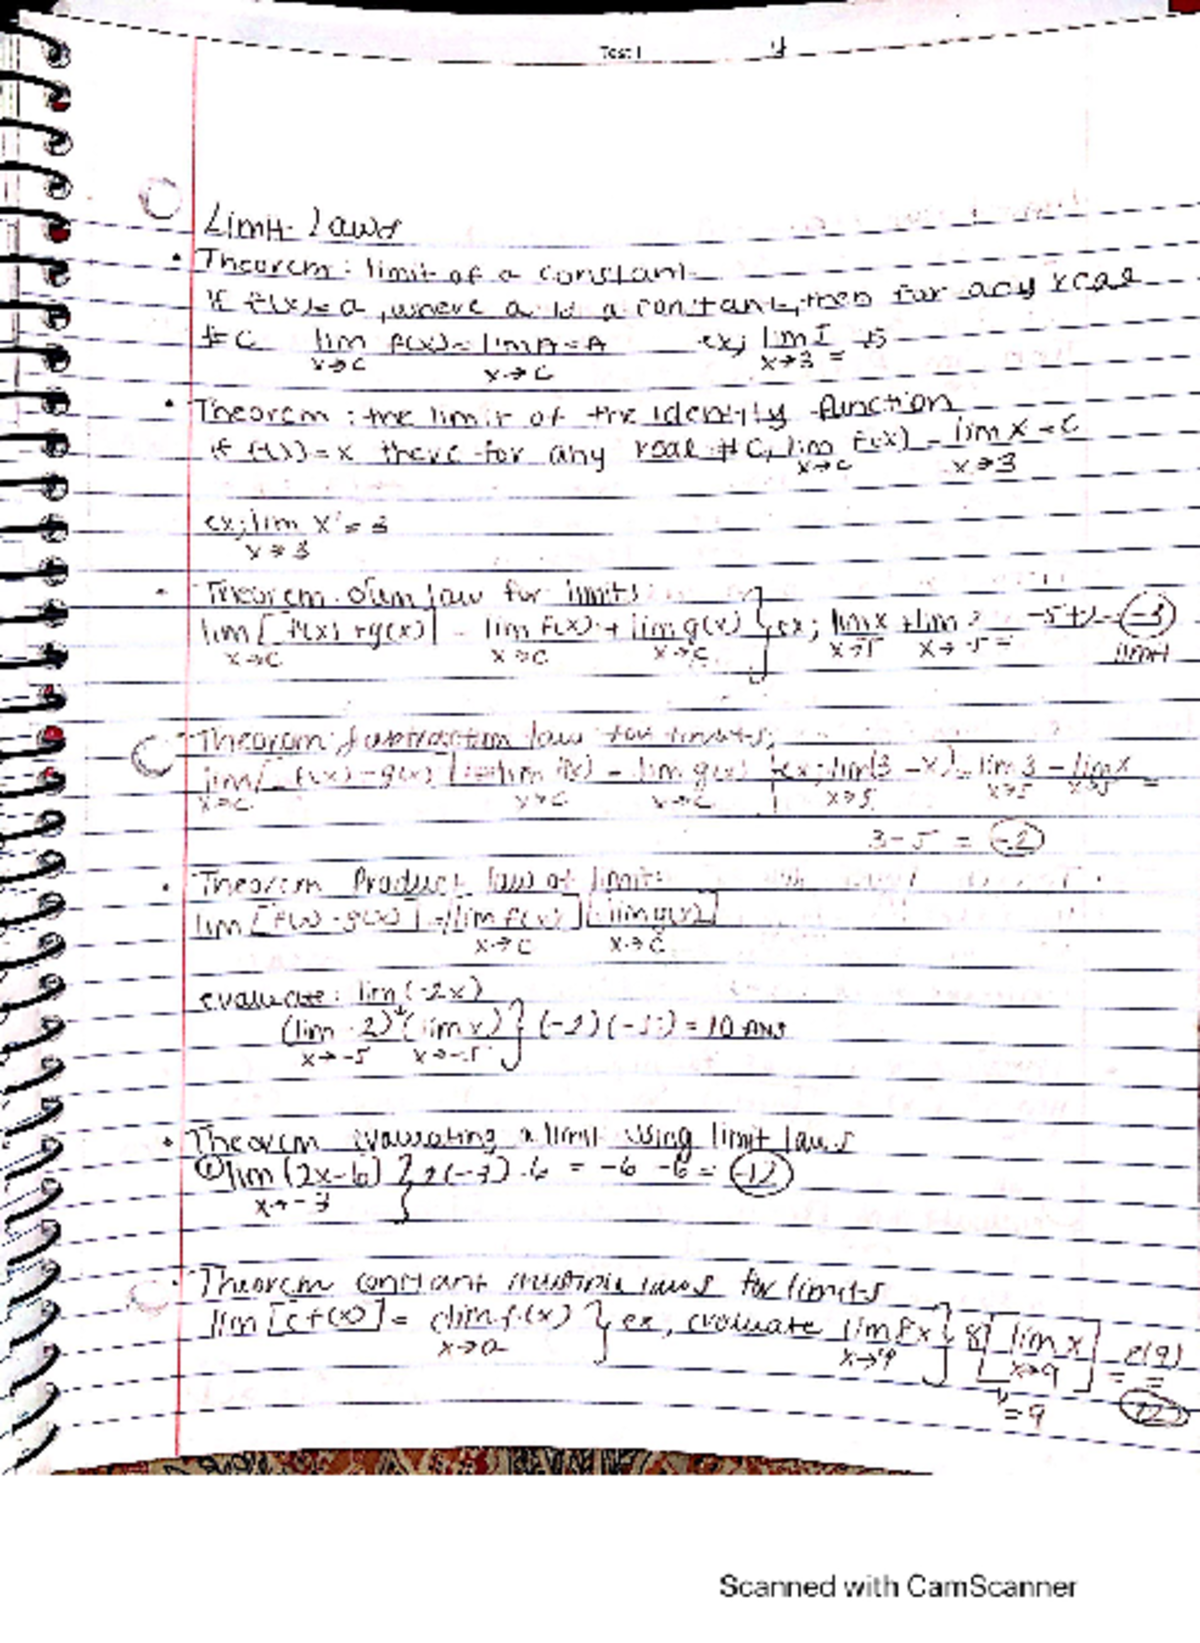 Test 1
Limit laws
• Theorem: limit of a constant
If f(x)=a, where a is a constant, then for any real
# C lim f(x)=lim A=A ex; lim 5 = 5
x→c x→c x→3
• Theorem: the limit of the identity function
if f(x)=x there for any real # C, lim f(x) = lim x = C
x→c x→3
ex; lim x = 3
x→3
• Theorem sum law for limits
lim [f(x)+g(x)] = lim f(x) + lim g(x) } ex; lim x + lim 2 -5+2=-3
x→c x→c x→c x→-5 = limit
Theorem: subtraction law for limits;
lim [f(x)-g(x)] = lim f(x) - lim g(x) } ex; lim(3-x) = lim 3 - lim x =
x→c x→c x→c x→5 x→5 x→5
3-5 = -2
• Theorem Product law of limits
lim [f(x)·g(x)] = [lim f(x)][lim g(x)]
x→c x→c
evaluate: lim (-2x)
(lim -2)(lim x) } (-2)(-5) = 10 ANS
x→-5 x→-5
• Theorem evaluating a limit using limit laws
lim (2x-6) } 2(-3)-6 = -6 -6 = -12
x→-3
Theorem constant multiple laws for limits
lim [cf(x)] = c lim f(x) } ex, evaluate lim 8x } 8[lim x] = 8(9) =
x→a x→9 x→9
=9 72
Scanned with CamScanner